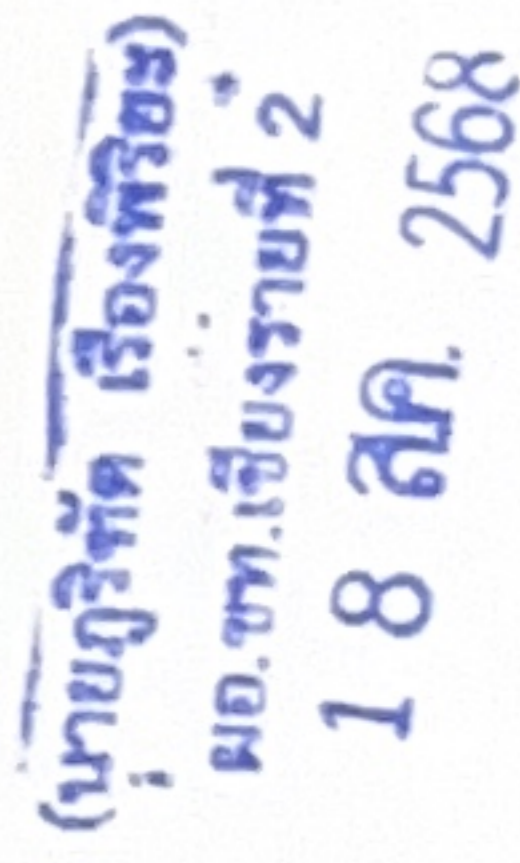 (นายภูริทัต เรืองพิริยะ)
ผอ.ขท.เชียงรายที่ 2
18 ส.ค. 2568